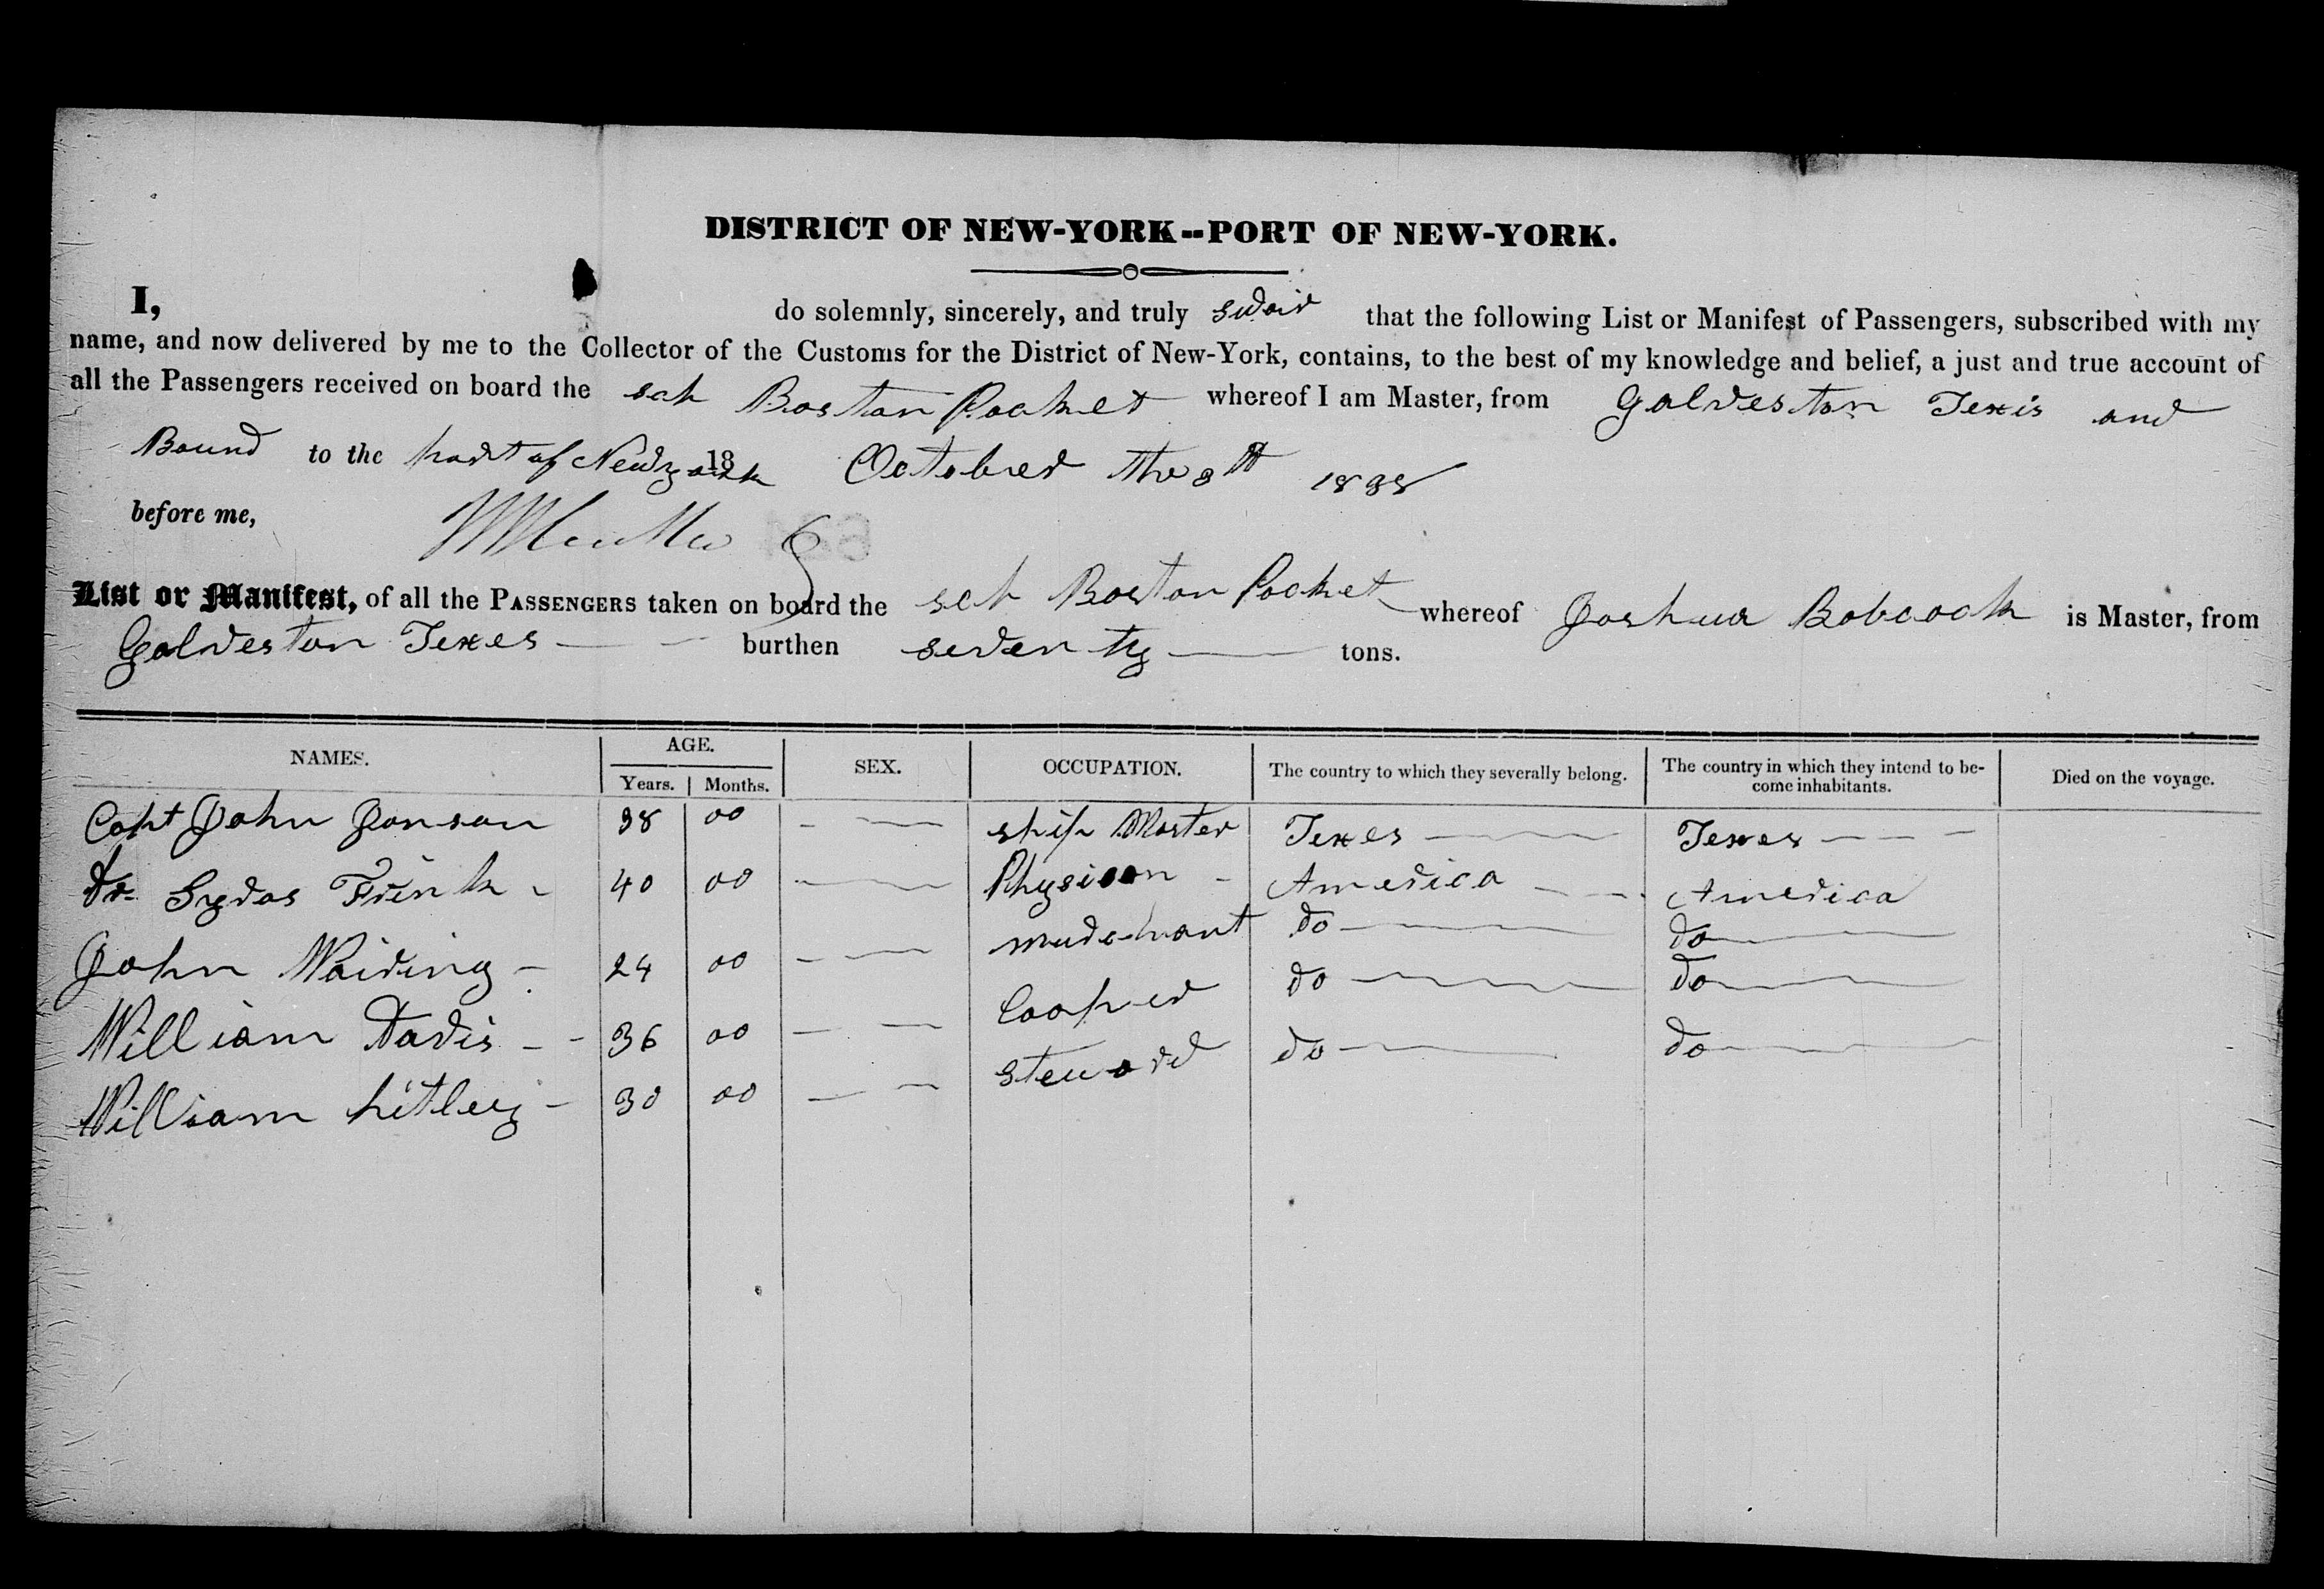 DISTRICT OF NEW-YORK--PORT OF NEW-YORK.
I, do solemnly, sincerely, and truly swair that the following List or Manifest of Passengers, subscribed with my
name, and now delivered by me to the Collector of the Customs for the District of New-York, contains, to the best of my knowledge and belief, a just and true account of
all the Passengers received on board the sch Boston Packet whereof I am Master, from Galveston Texis and
Bound to the port of Newyork 18 October the 8th 1838
before me,
List or Manifest, of all the PASSENGERS taken on board the sch Boston Packet whereof Joshua Babcock is Master, from
Galveston Texes burthen seventy tons.
NAMES. AGE. SEX. OCCUPATION. The country to which they severally belong. The country in which they intend to be-
come inhabitants. Died on the voyage.
Years. Months.
Capt John Jonson 38 00 ship Master Texes Texes
Dr Frink 40 00 Physicon America America
John Wairing 24 00 merchant do do
William Davis 36 00 Cooper do do
William 30 00 steward do do